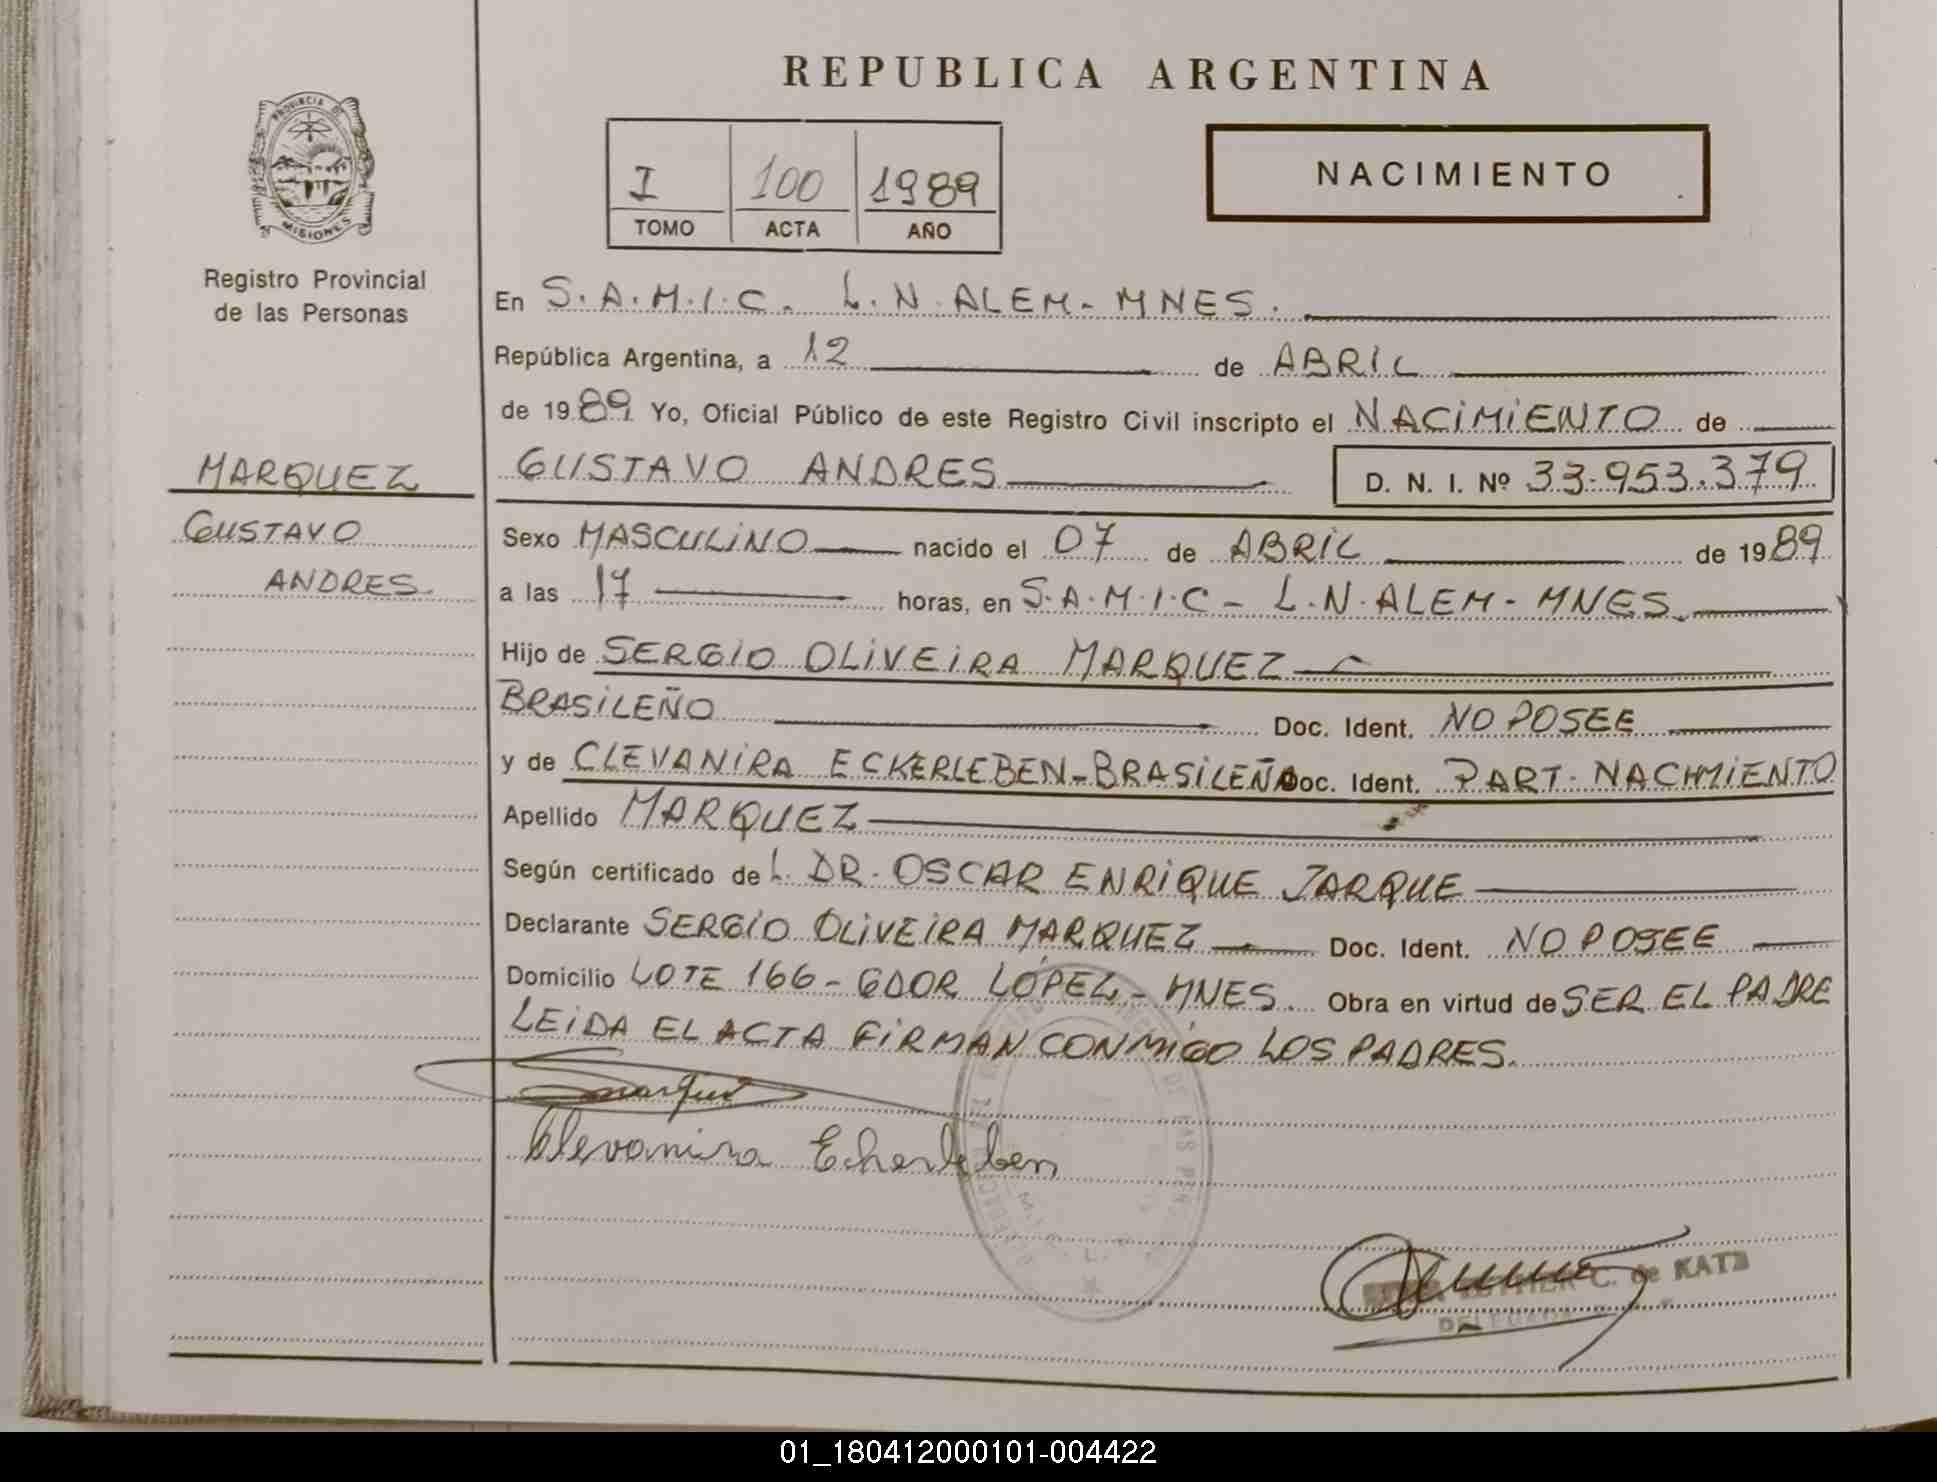 REPUBLICA ARGENTINA
PROVINCIA DE
MISIONES
Registro Provincial
de las Personas
I 100 1989
TOMO ACTA AÑO
NACIMIENTO
En S.A.M.I.C. L.N. ALEM - MNES.
República Argentina, a 12 de ABRIL
de 1989 Yo, Oficial Público de este Registro Civil inscripto el NACIMIENTO de
MARQUEZ
GUSTAVO ANDRES D. N. I. Nº 33.953.379
GUSTAVO
ANDRES
Sexo MASCULINO nacido el 07 de ABRIL de 1989
a las 17 horas, en S.A.M.I.C - L.N. ALEM - MNES
Hijo de SERGIO OLIVEIRA MARQUEZ
BRASILEÑO Doc. Ident. NO POSEE
y de CLEVANIRA ECKERLEBEN - BRASILEÑA Doc. Ident. PART. NACIMIENTO
Apellido MARQUEZ
Según certificado de L. DR. OSCAR ENRIQUE JARQUE
Declarante SERGIO OLIVEIRA MARQUEZ Doc. Ident. NO POSEE
Domicilio LOTE 166 - GDOR LÓPEZ - MNES. Obra en virtud de SER EL PADRE
LEIDA EL ACTA FIRMAN CONMIGO LOS PADRES.
Clevanira Ekerleben
C. de KATZ
DELEGADA
01_180412000101-004422